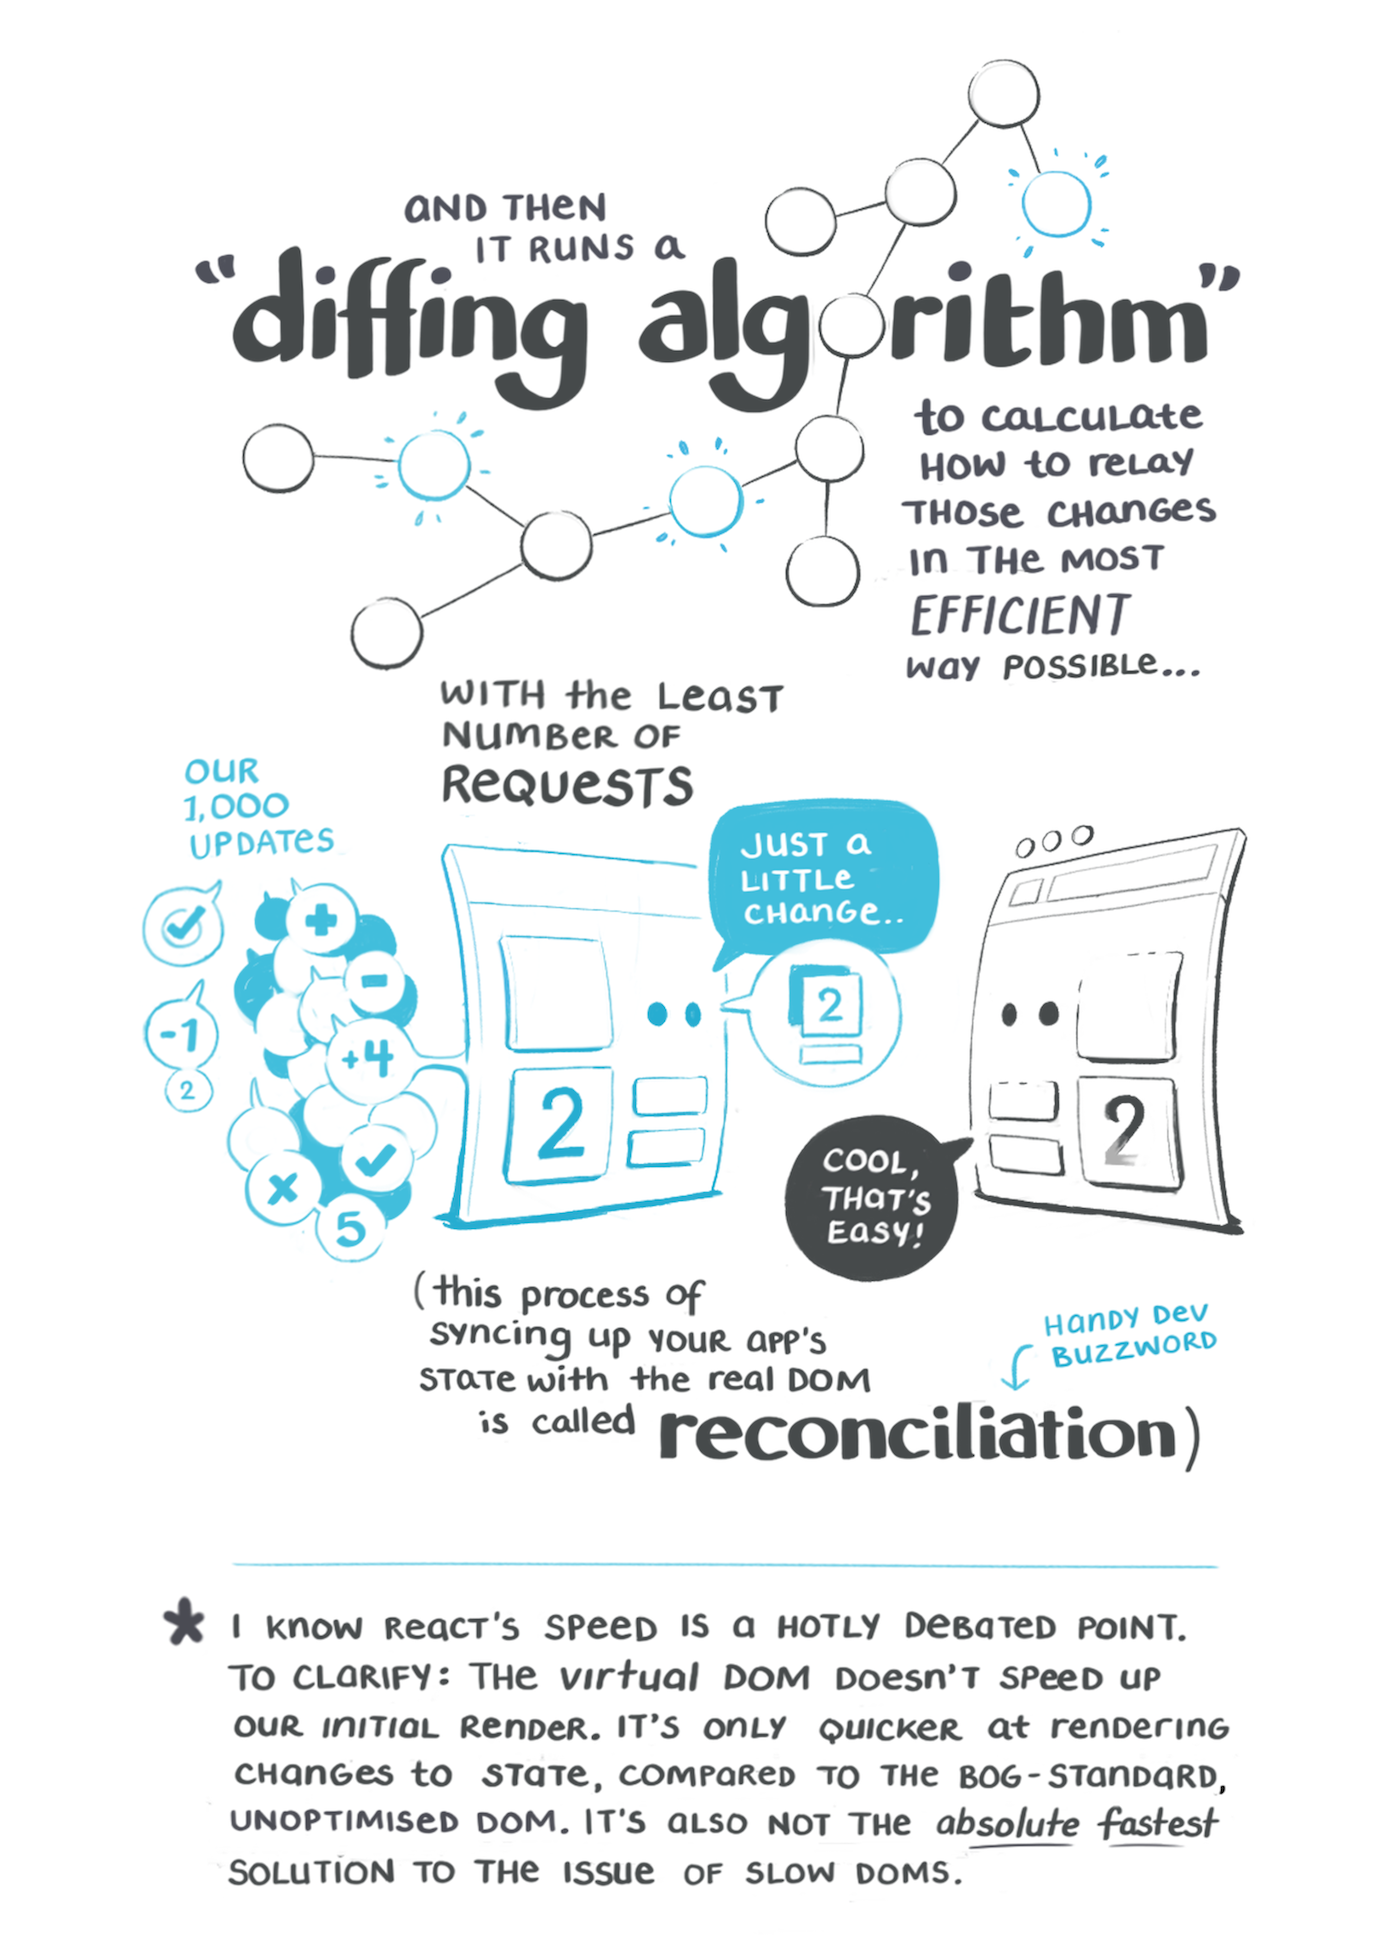 AND THEN
IT RUNS A
"diffing algorithm"
to CALCULATE
HOW to RELAY
THOSE CHANGES
IN THE MOST
EFFICIENT
WAY POSSIBLE...
WITH the LEAST
NUMBER OF
REQUESTS
OUR
1,000
UPDATES
JUST A
LITTLE
CHANGE..
+
-
-1
2
+4
×
5
2
2
2
COOL,
THAT'S
EASY!
(this process of
syncing up YOUR APP'S
STATE with the real DOM
is called reconciliation)
HANDY DEV
BUZZWORD
* I KNOW REACT'S SPEED IS A HOTLY DEBATED POINT.
TO CLARIFY: THE virtual DOM DOESN'T SPEED UP
OUR INITIAL RENDER. IT'S ONLY QUICKER at RENDERING
CHANGES to STATE, COMPARED TO THE BOG-STANDARD,
UNOPTIMISED DOM. IT'S ALSO NOT THE absolute fastest
SOLUTION TO THE ISSUE OF SLOW DOMS.